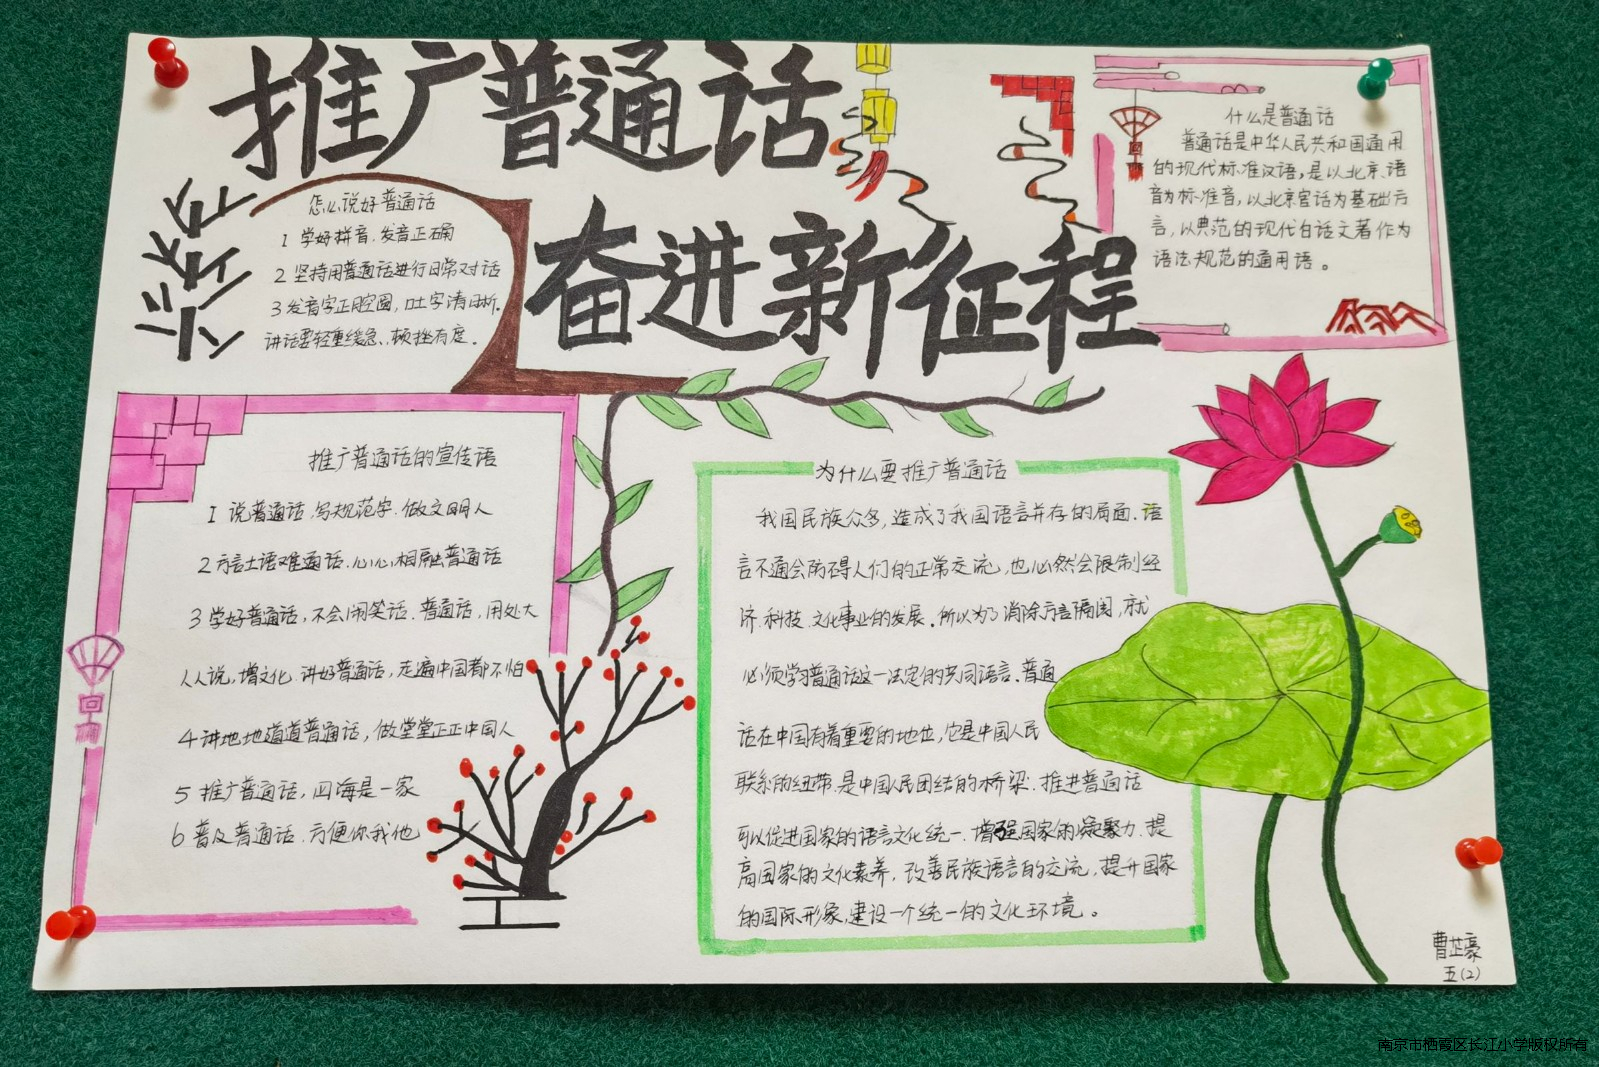 推广普通话
奋进新征程
怎么说好普通话
1 学好拼音.发音正确
2 坚持用普通话进行日常对话
3 发音字正腔圆,吐字清晰.
讲话要轻重缓急、顿挫有度。
什么是普通话
普通话是中华人民共和国通用
的现代标准汉语,是以北京语
音为标准音,以北京官话为基础方
言,以典范的现代白话文著作为
语法规范的通用语。
推广普通话的宣传语
1 说普通话,写规范字.做文明人
2 方言土语难通话.心心相融普通话
3 学好普通话,不会闹笑话.普通话,用处大
人人说,增文化.讲好普通话,走遍中国都不怕
4 讲地地道道普通话,做堂堂正正中国人
5 推广普通话,四海是一家
6 普及普通话.方便你我他
为什么要推广普通话
我国民族众多,造成了我国语言并存的局面.语
言不通会防碍人们的正常交流,也必然会限制经
济.科技.文化事业的发展.所以为了消除方言隔阂,就
必须学习普通话这一法定的共同语言.普通
话在中国有着重要的地位,它是中国人民
联系的纽带.是中国人民团结的桥梁.推进普通话
可以促进国家的语言文化统一.增强国家的凝聚力.提
高国家的文化素养,改善民族语言的交流,提升国家
的国际形象,建设一个统一的文化环境。
曹芷豪
五(2)
南京市栖霞区长江小学版权所有